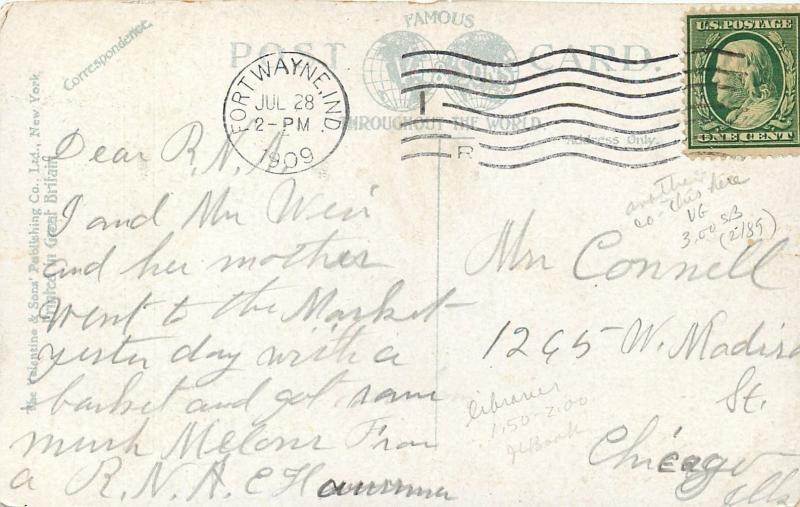 FAMOUS
POST CARD.
THROUGHOUT THE WORLD
Correspondence.
Address Only.
The Valentine & Sons' Publishing Co., Ltd., New York.
Printed in Great Britain
FORT WAYNE, IND.
JUL 28
2-PM
1909
R
U.S. POSTAGE
ONE CENT
another
co-this here
VG
3.00 SB
(2/89)
Dear R.N.A.
I and Mrs Weir
and her mother
went to the Market
yester day with a
basket and got some
mush Melons From
a R.N.A.
Mrs Connell
1295 W. Madison
St.
Chicago
Ills
libraries
1.50-2.00